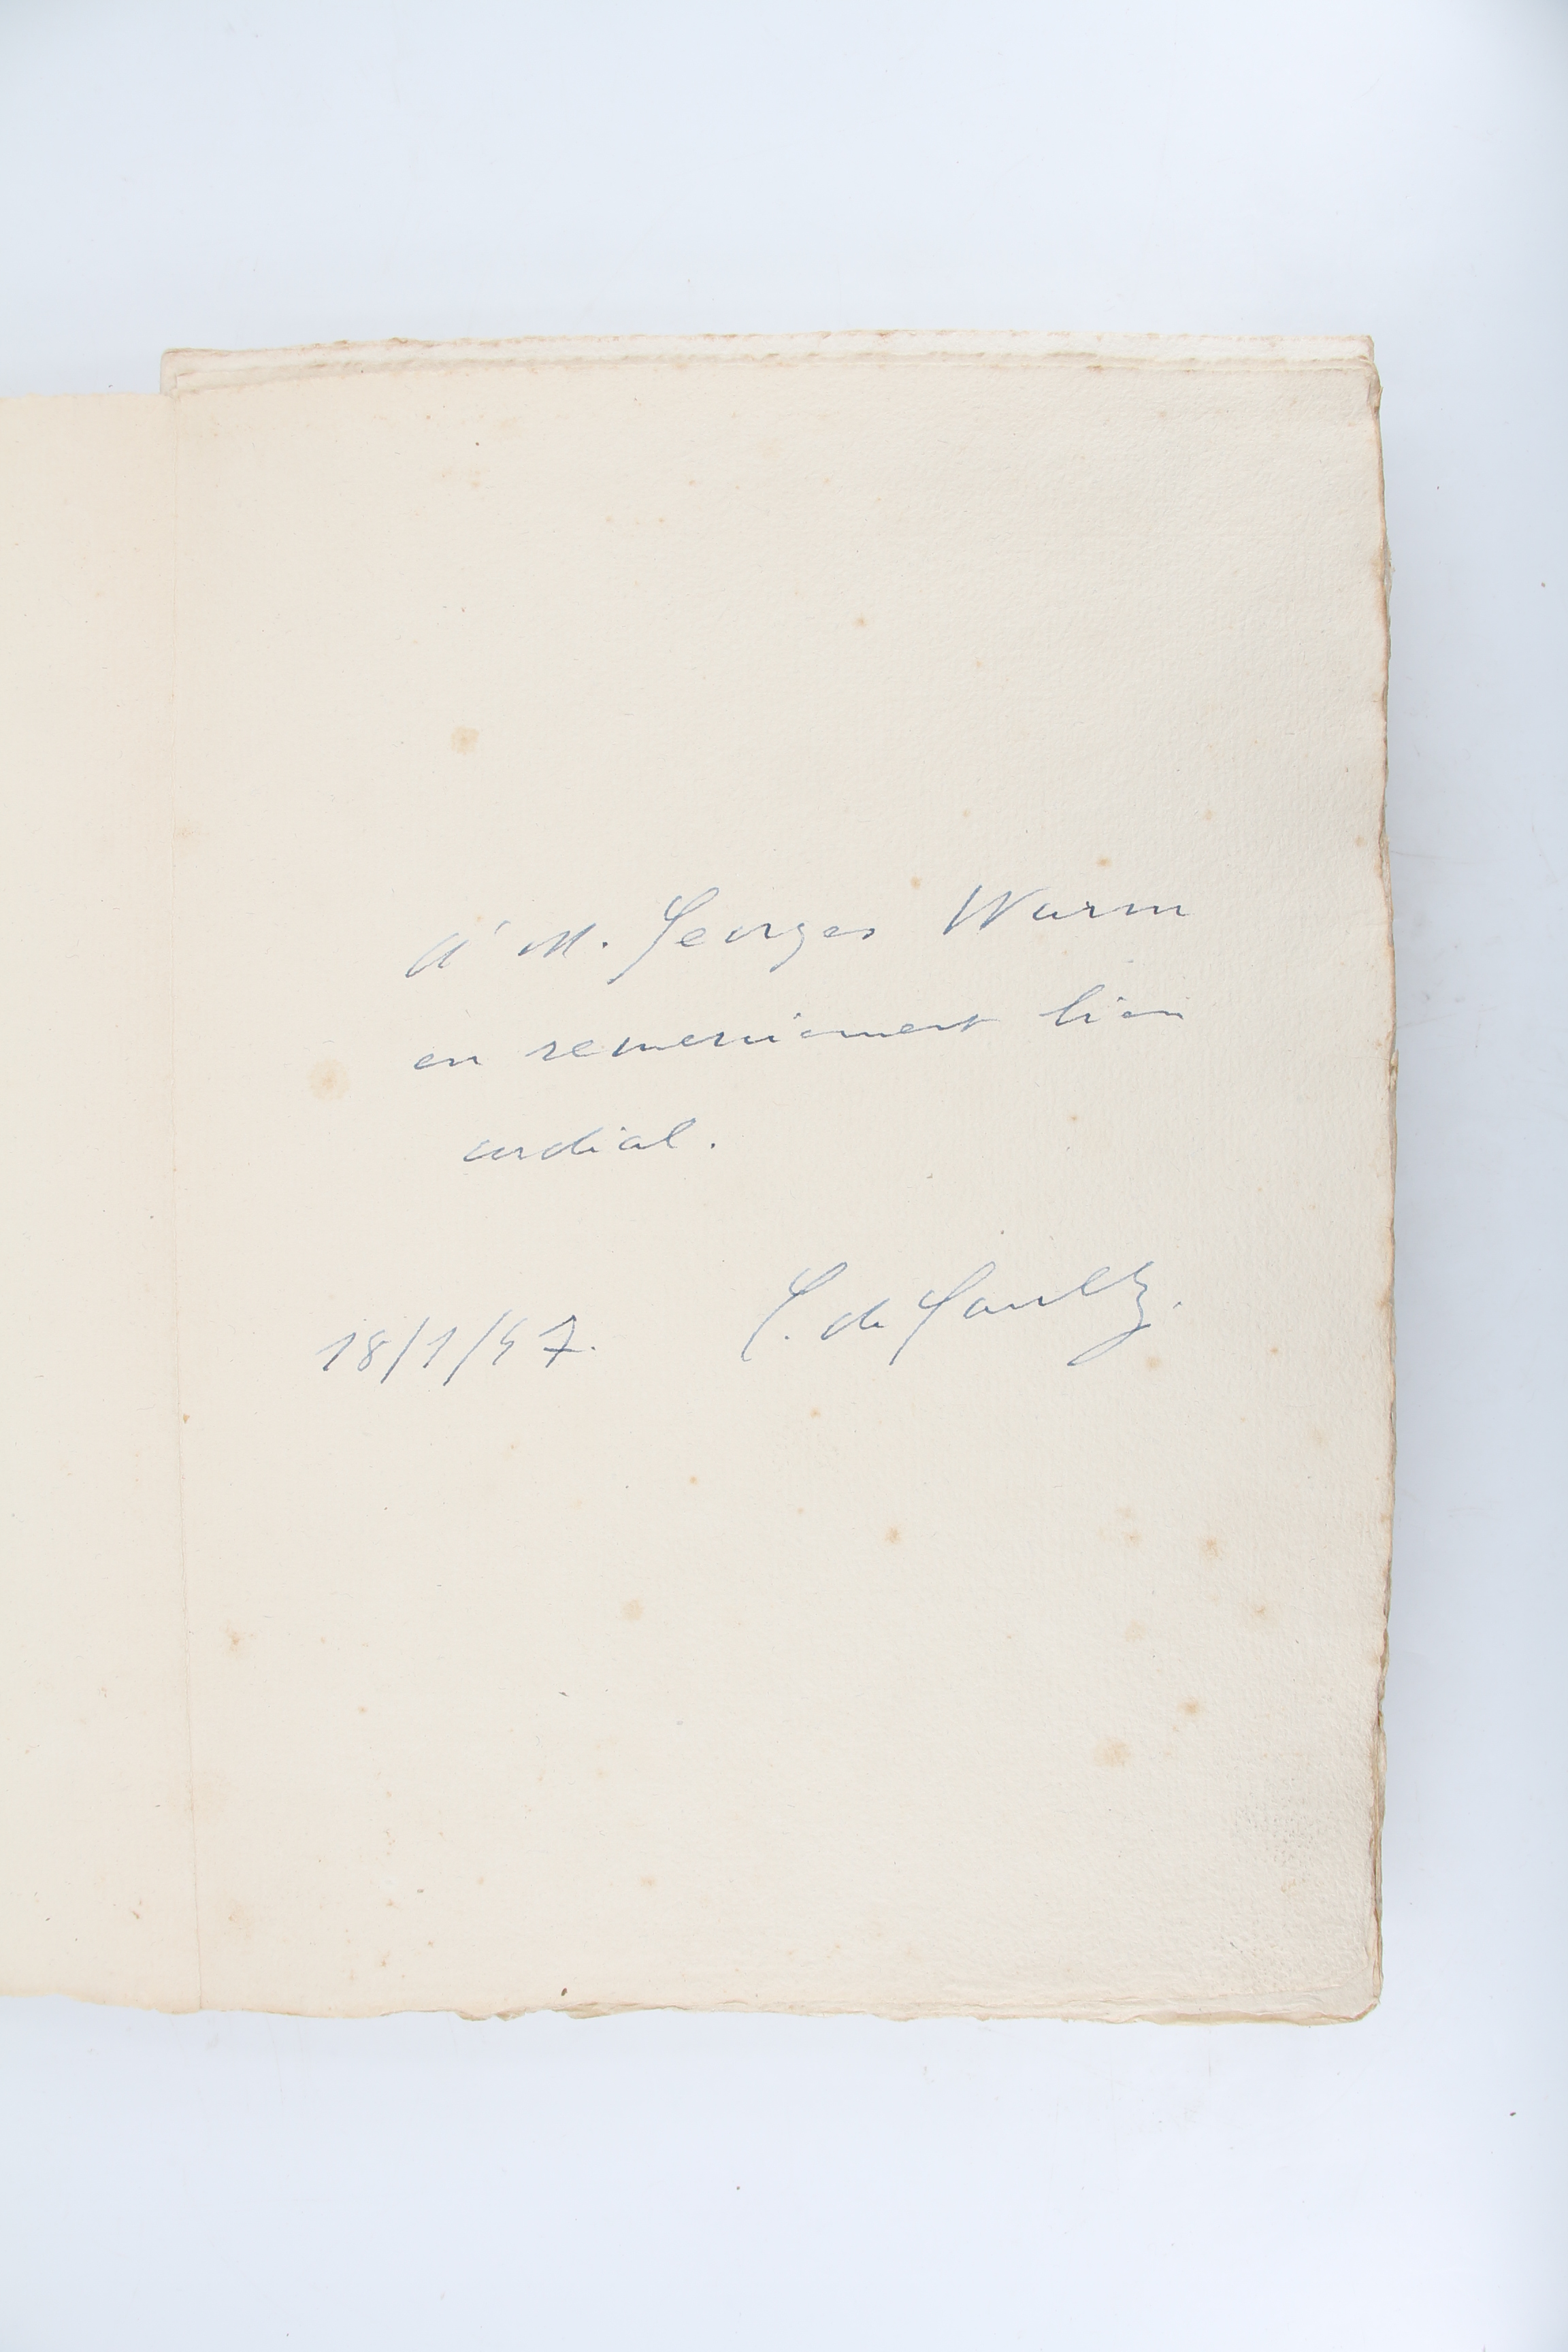 à M. Georges Wurm
en remerciement bien
cordial.
18/1/57. G. de